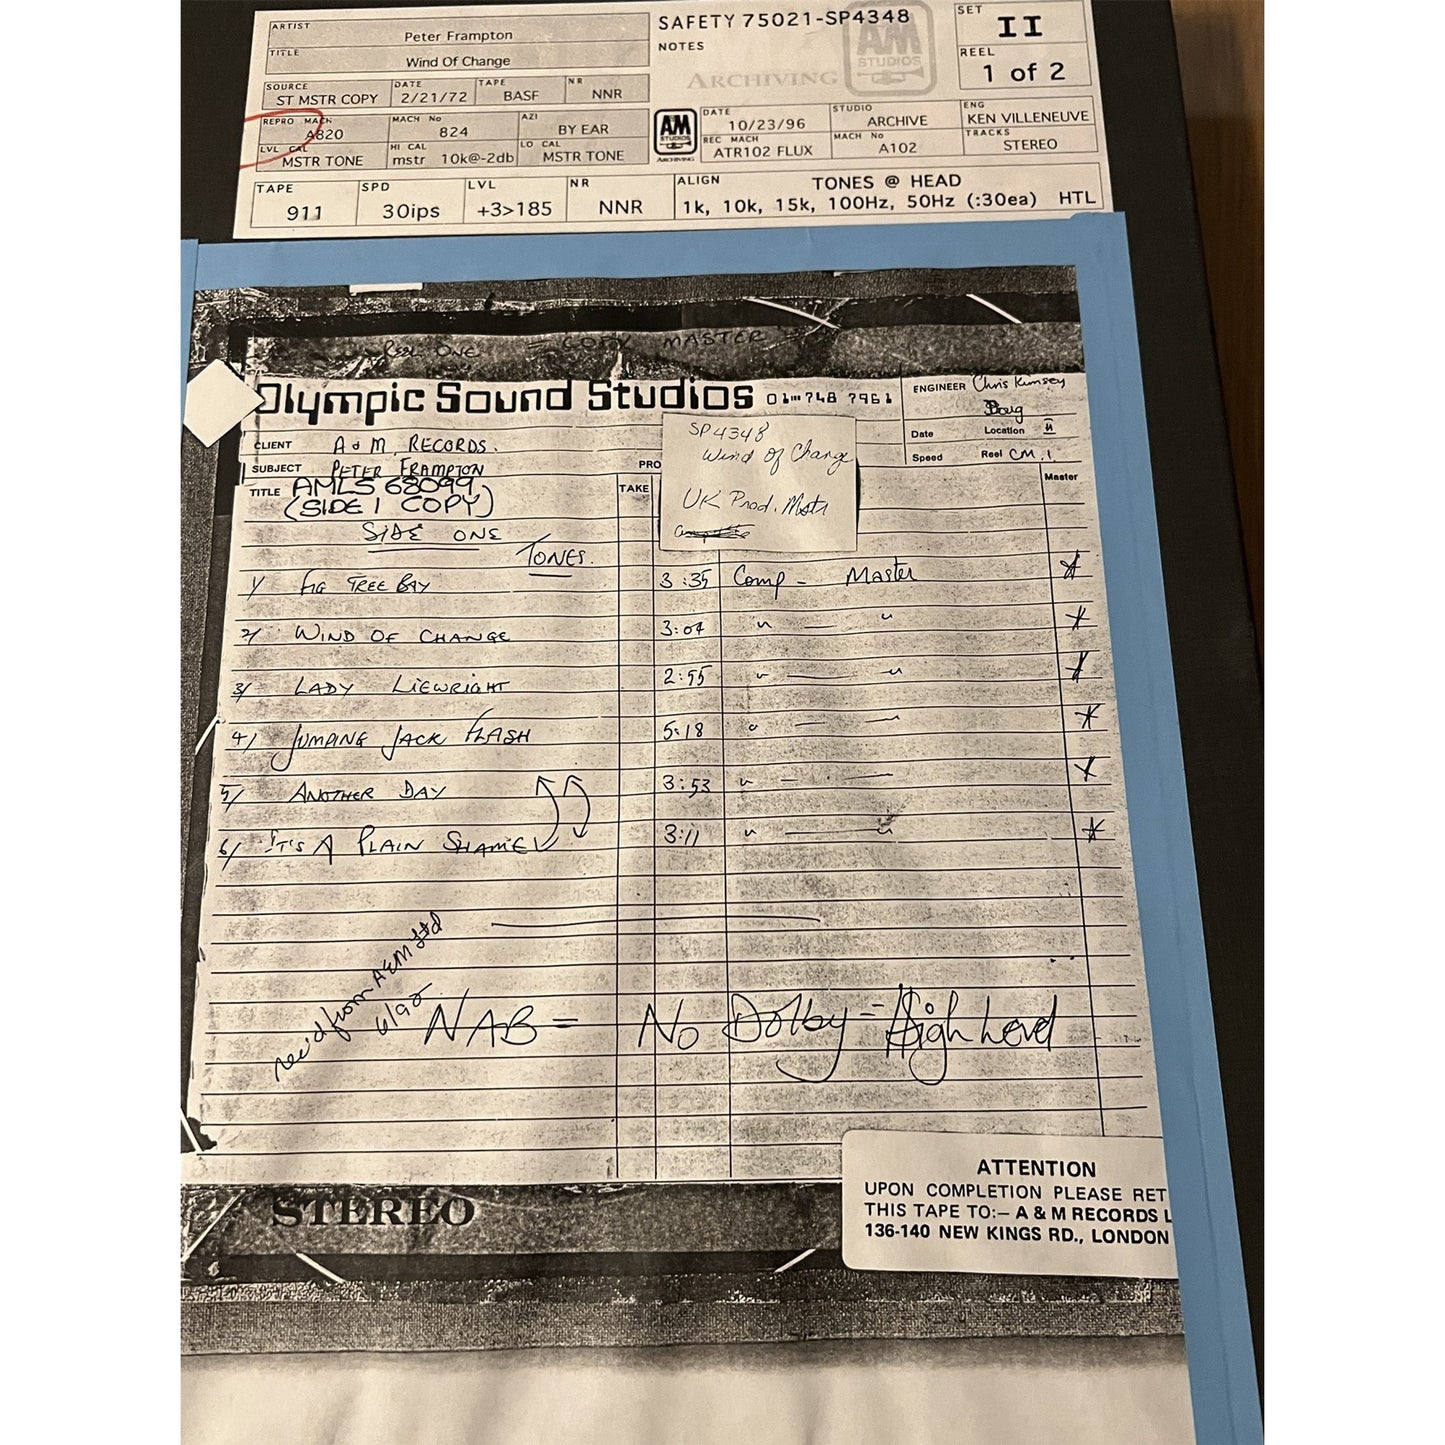 ARTIST
Peter Frampton
TITLE
Wind Of Change
SOURCE DATE TAPE NR
ST MSTR COPY 2/21/72 BASF NNR
REPRO MACH MACH No AZI
A820 824 BY EAR
LVL CAL HI CAL LO CAL
MSTR TONE mstr 10k@-2db MSTR TONE
SAFETY 75021-SP4348
NOTES
A&M
STUDIOS
ARCHIVING
SET
II
REEL
1 of 2
A&M
STUDIOS
ARCHIVING
DATE STUDIO ENG
10/23/96 ARCHIVE KEN VILLENEUVE
REC MACH MACH No TRACKS
ATR102 FLUX A102 STEREO
TAPE SPD LVL NR ALIGN TONES @ HEAD
911 30ips +3>185 NNR 1k, 10k, 15k, 100Hz, 50Hz (:30ea) HTL
REEL ONE = COPY MASTER
Olympic Sound Studios 01 748 7961
ENGINEER Chris Kimsey
Doug
Date Location
Speed Reel CM.1.
CLIENT A & M RECORDS.
SUBJECT PETER FRAMPTON
PRO
TITLE AMLS 68099
(SIDE 1 COPY)
TAKE
Master
SP4348
Wind Of Change
UK Prod. Mstr
SIDE ONE
TONES.
1/ FIG TREE BAY 3:35 Comp - Master
2/ WIND OF CHANGE 3:04 " — "
3/ LADY LIEWRIGHT 2:55 " — "
4/ JUMPING JACK FLASH 5:18 " — "
5/ ANOTHER DAY 3:53 " — "
6/ IT'S A PLAIN SHAME 3:11 " — "
rec'd from A&M Ltd
6/92
NAB = No Dolby = High Level
STEREO
ATTENTION
UPON COMPLETION PLEASE RET
THIS TAPE TO:– A & M RECORDS L
136-140 NEW KINGS RD., LONDON